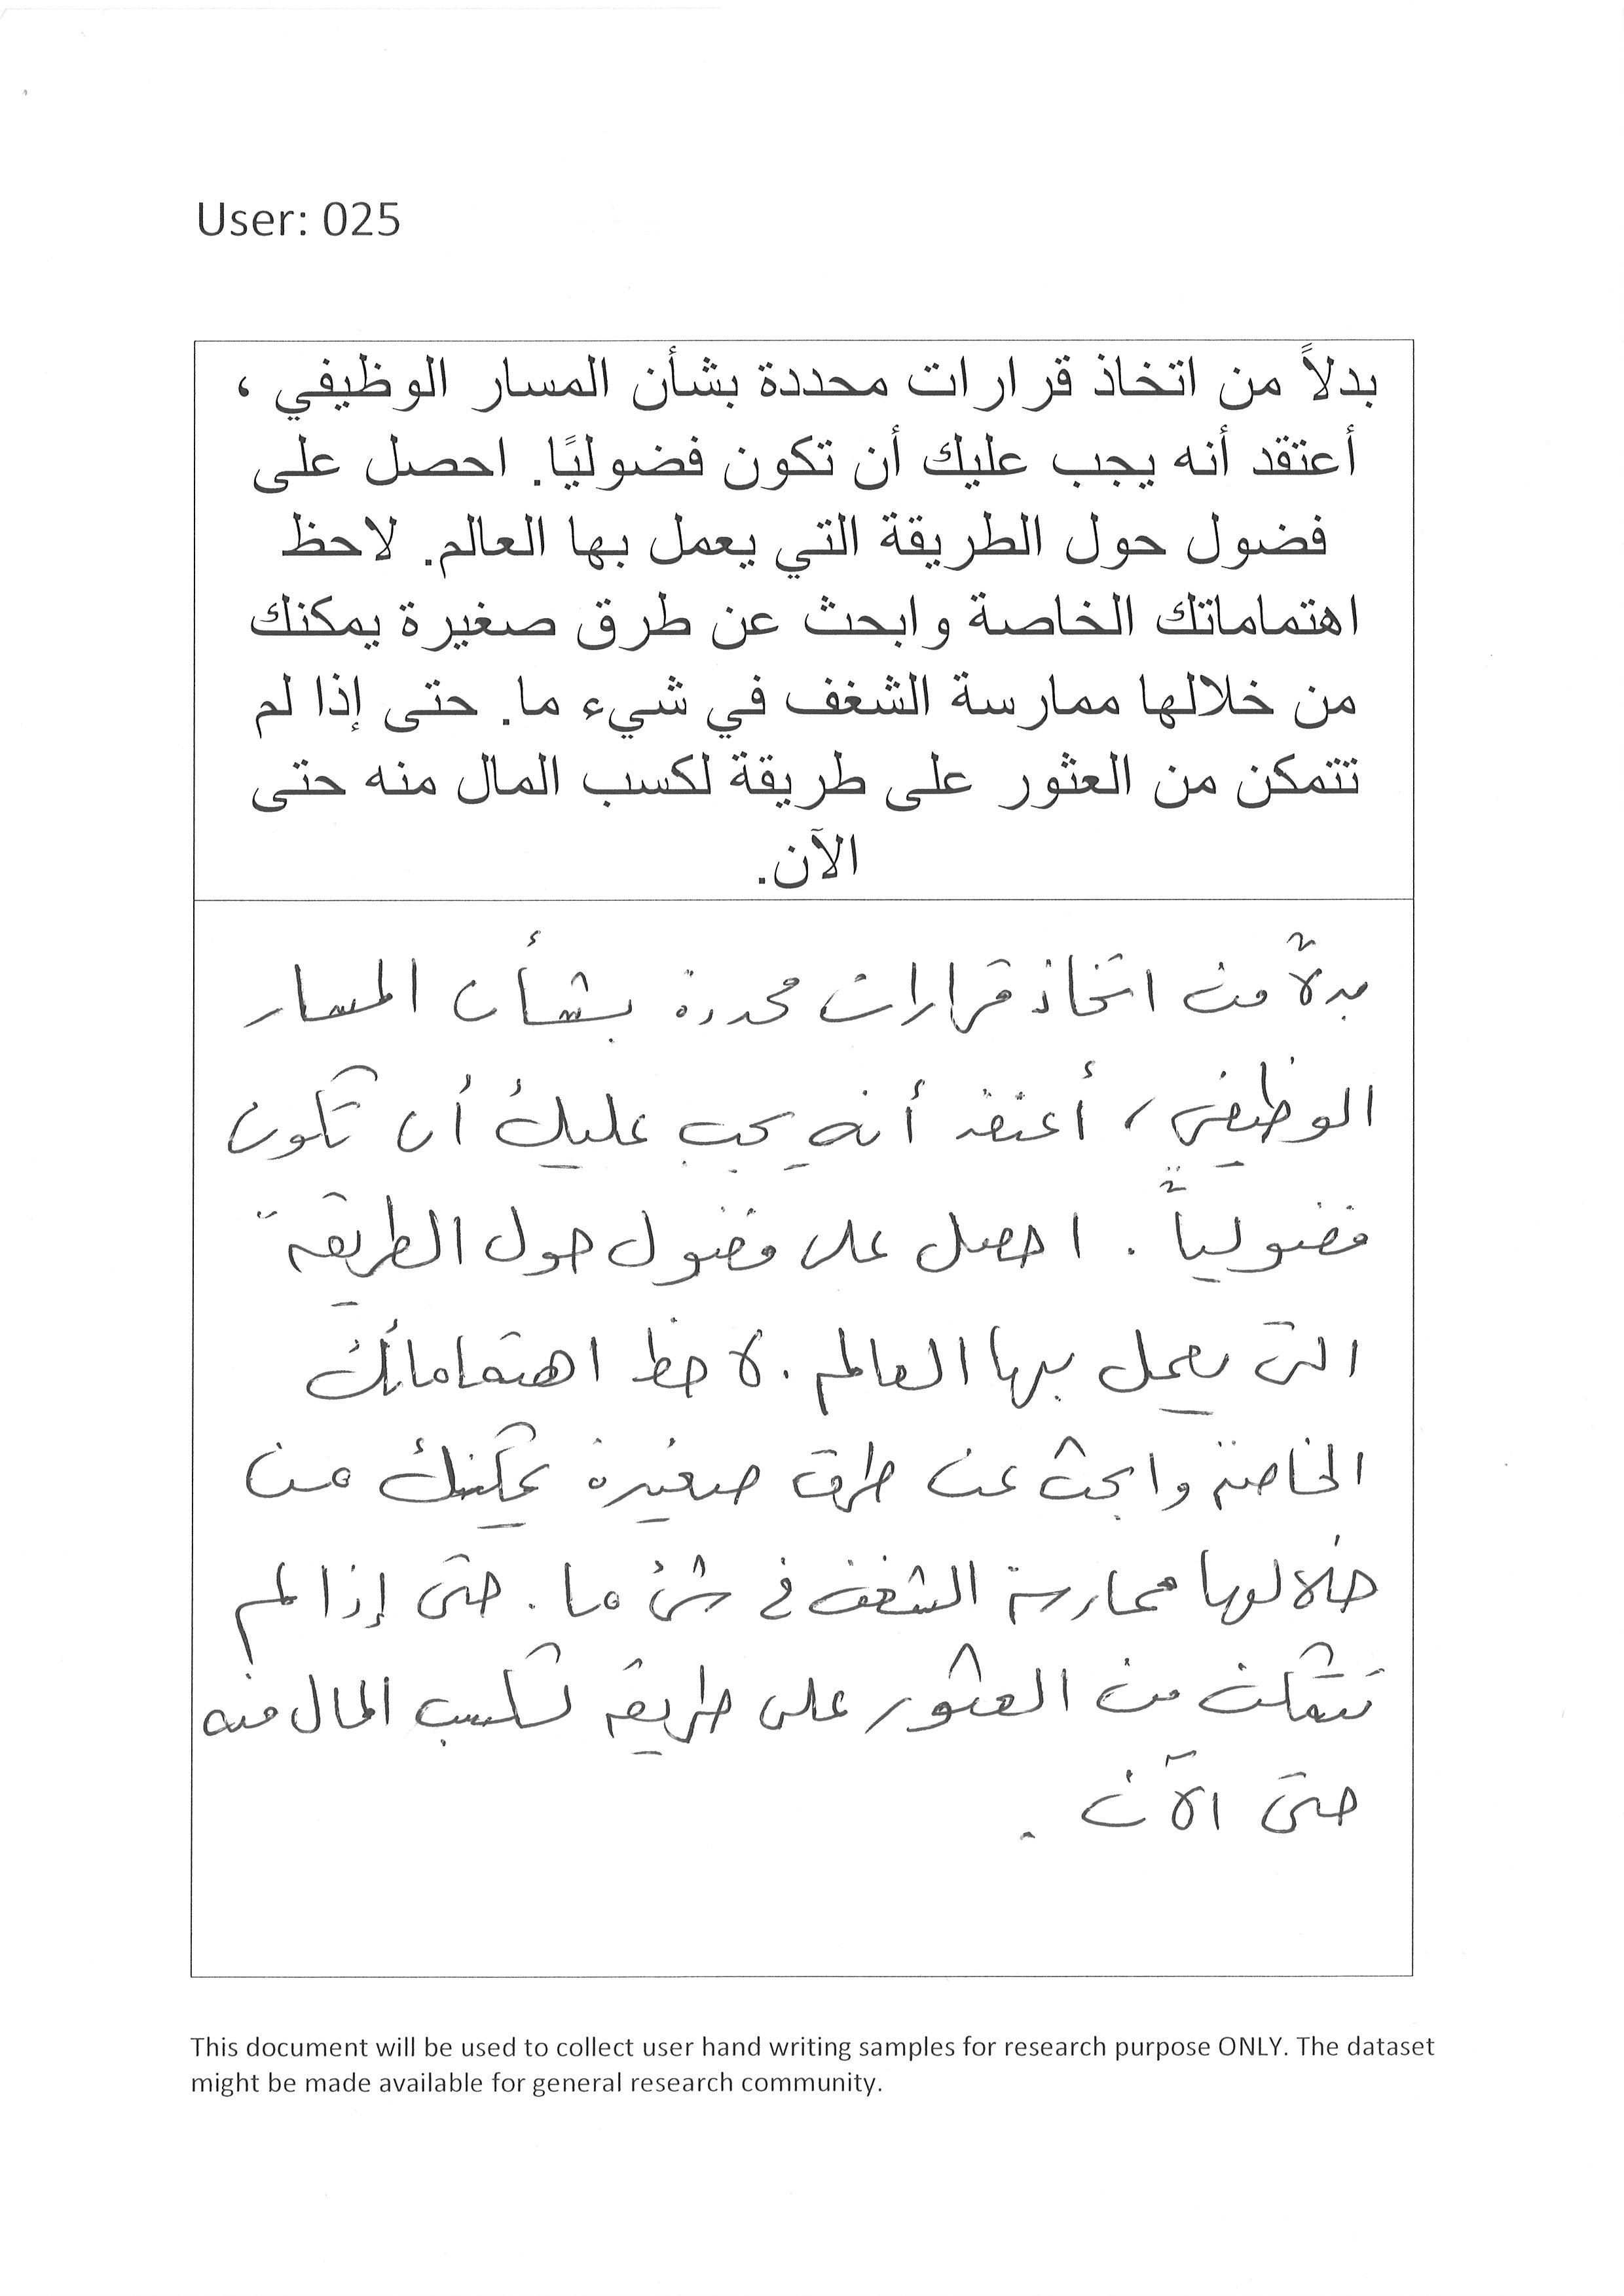 User: 025
بدلاً من اتخاذ قرارات محددة بشأن المسار الوظيفي ،
أعتقد أنه يجب عليك أن تكون فضوليًا. احصل على
فضول حول الطريقة التي يعمل بها العالم. لاحظ
اهتماماتك الخاصة وابحث عن طرق صغيرة يمكنك
من خلالها ممارسة الشغف في شيء ما. حتى إذا لم
تتمكن من العثور على طريقة لكسب المال منه حتى
الآن.
بدلاً من اتخاذ قرارات محددة بشأن المسار
الوظيفي، أعتقد أنه يجب عليك أن تكون
فضولياً. احصل على فضول حول الطريقة
التى يعمل بها العالم. لاحظ اهتماماتك
الخاصة وابحث عن طرق صغيرة يمكنك من
خلالها ممارسة الشغف في شئ ما. حتى إذا لم
تتمكن من العثور على طريقة لكسب المال منه
حتى الآن.
This document will be used to collect user hand writing samples for research purpose ONLY. The dataset
might be made available for general research community.